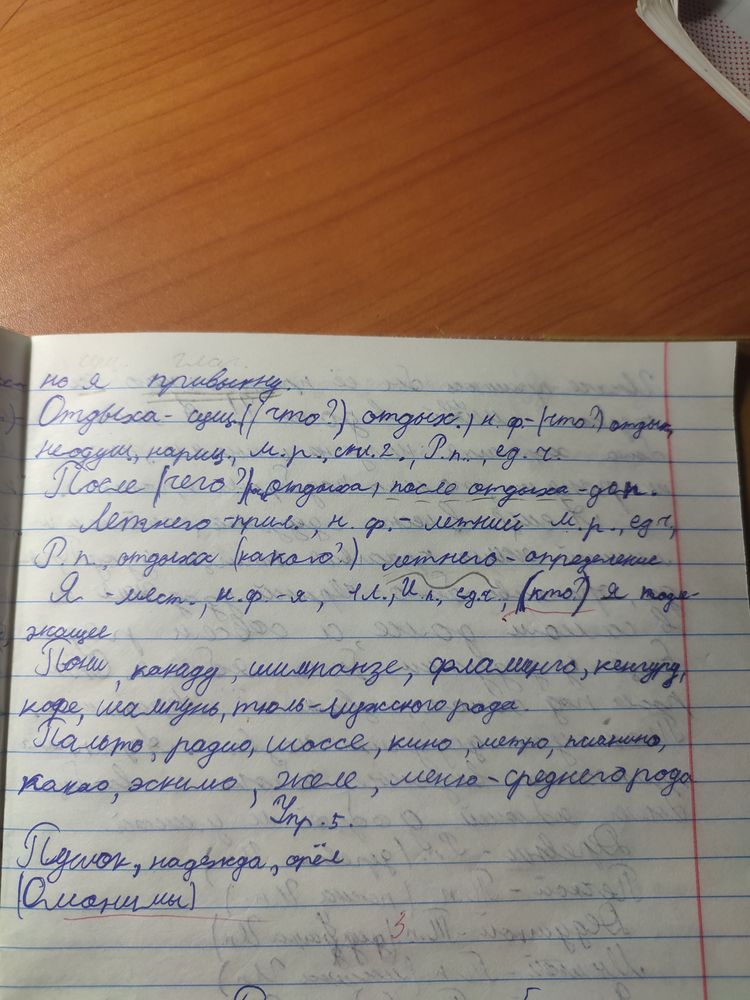 но я привыкну
Отдыха - сущ. ((что?) отдых., н. ф. - (что?) отдых,
неодуш, нариц., м. р., скл. 2., Р. п., ед. ч.
После (чего?) отдыха, после отдыха - доп.
Летнего - прил., н. ф. - летний м. р., ед ч,
Р. п., отдыха (какого?) летнего - определение
Я - мест., н. ф - я, 1 л., И. п, ед. ч, (кто?) я подле-
жащее
Пони, какаду, шимпанзе, фламинго, кенгуру,
кофе, шампунь, тюль - мужского рода.
Пальто, радио, шоссе, кино, метро, пианино,
какао, эскимо, желе, меню - среднего рода
Упр. 5.
Пушок, надежда, орёл
(Оманимы)
3